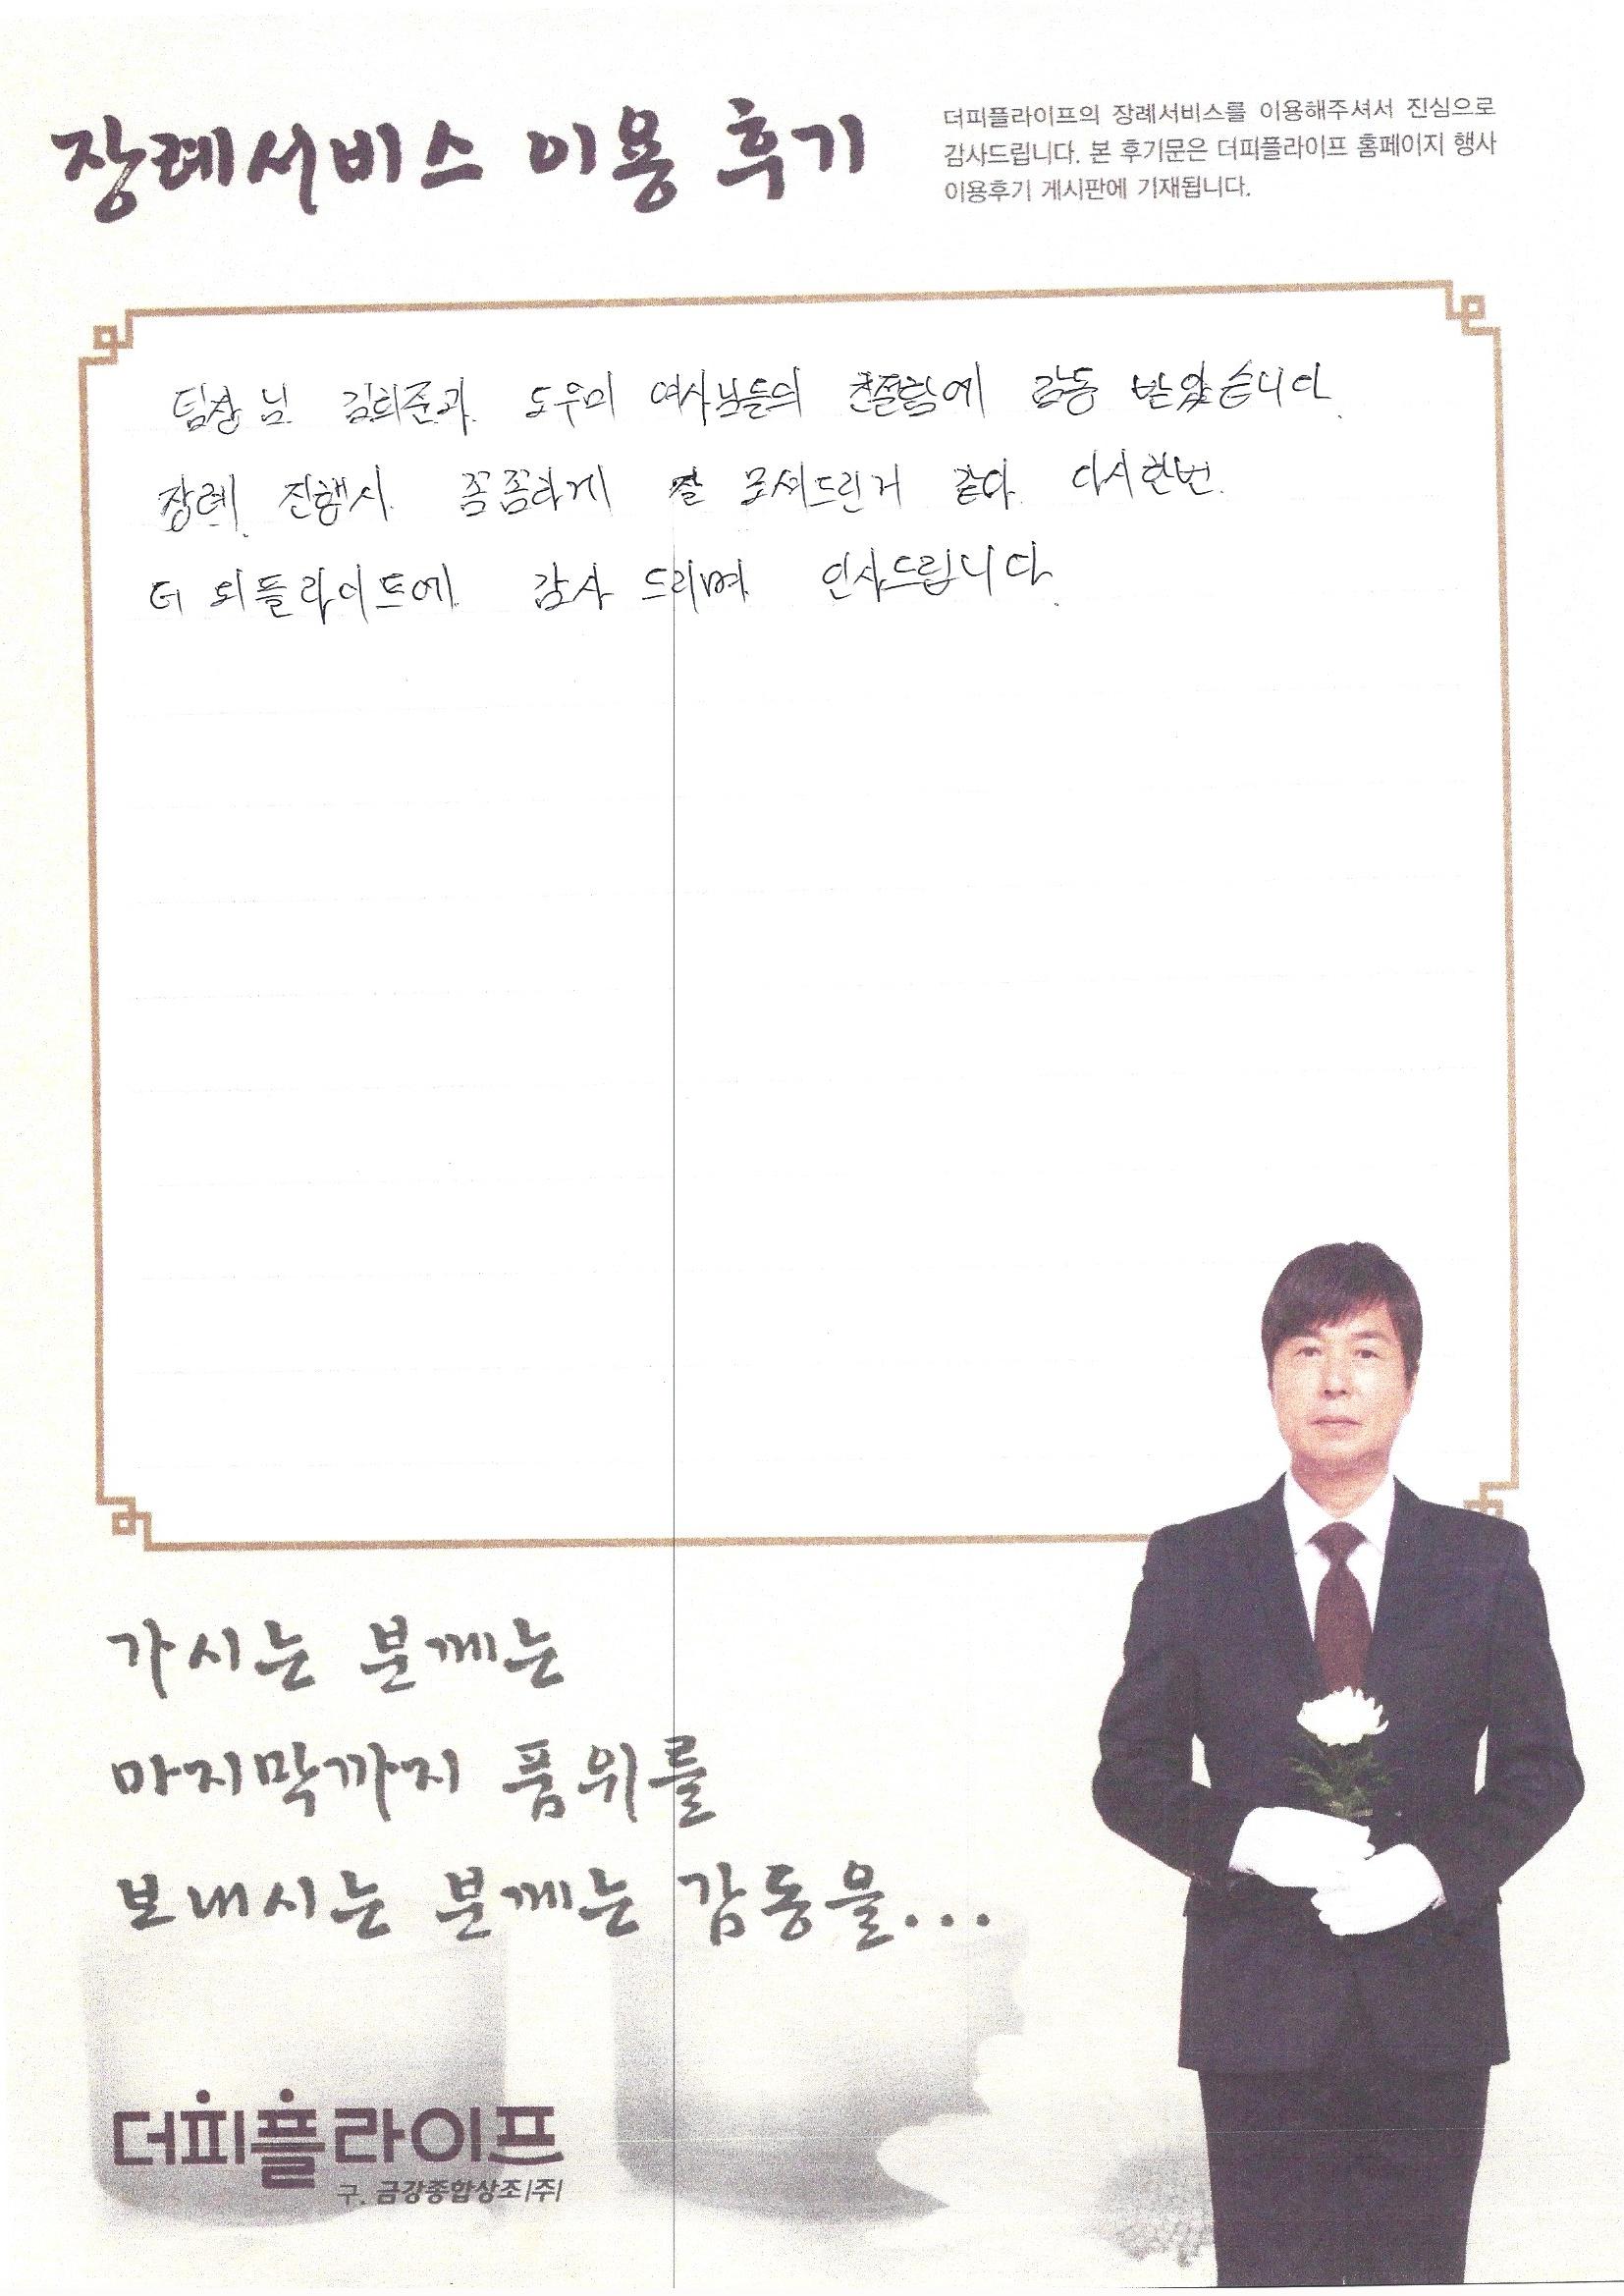 장례서비스 이용 후기
더피플라이프의 장례서비스를 이용해주셔서 진심으로
감사드립니다. 본 후기문은 더피플라이프 홈페이지 행사
이용후기 게시판에 기재됩니다.
팀장님 김희준과 도우미 여사님들의 친절함에 감동 받았습니다.
장례 진행시 꼼꼼하게 잘 모셔드린거 같다. 다시한번
더 피플라이프에 감사 드리며 인사드립니다.
가시는 분께는
마지막까지 품위를
보내시는 분께는 감동을...
더피플라이프
구. 금강종합상조(주)